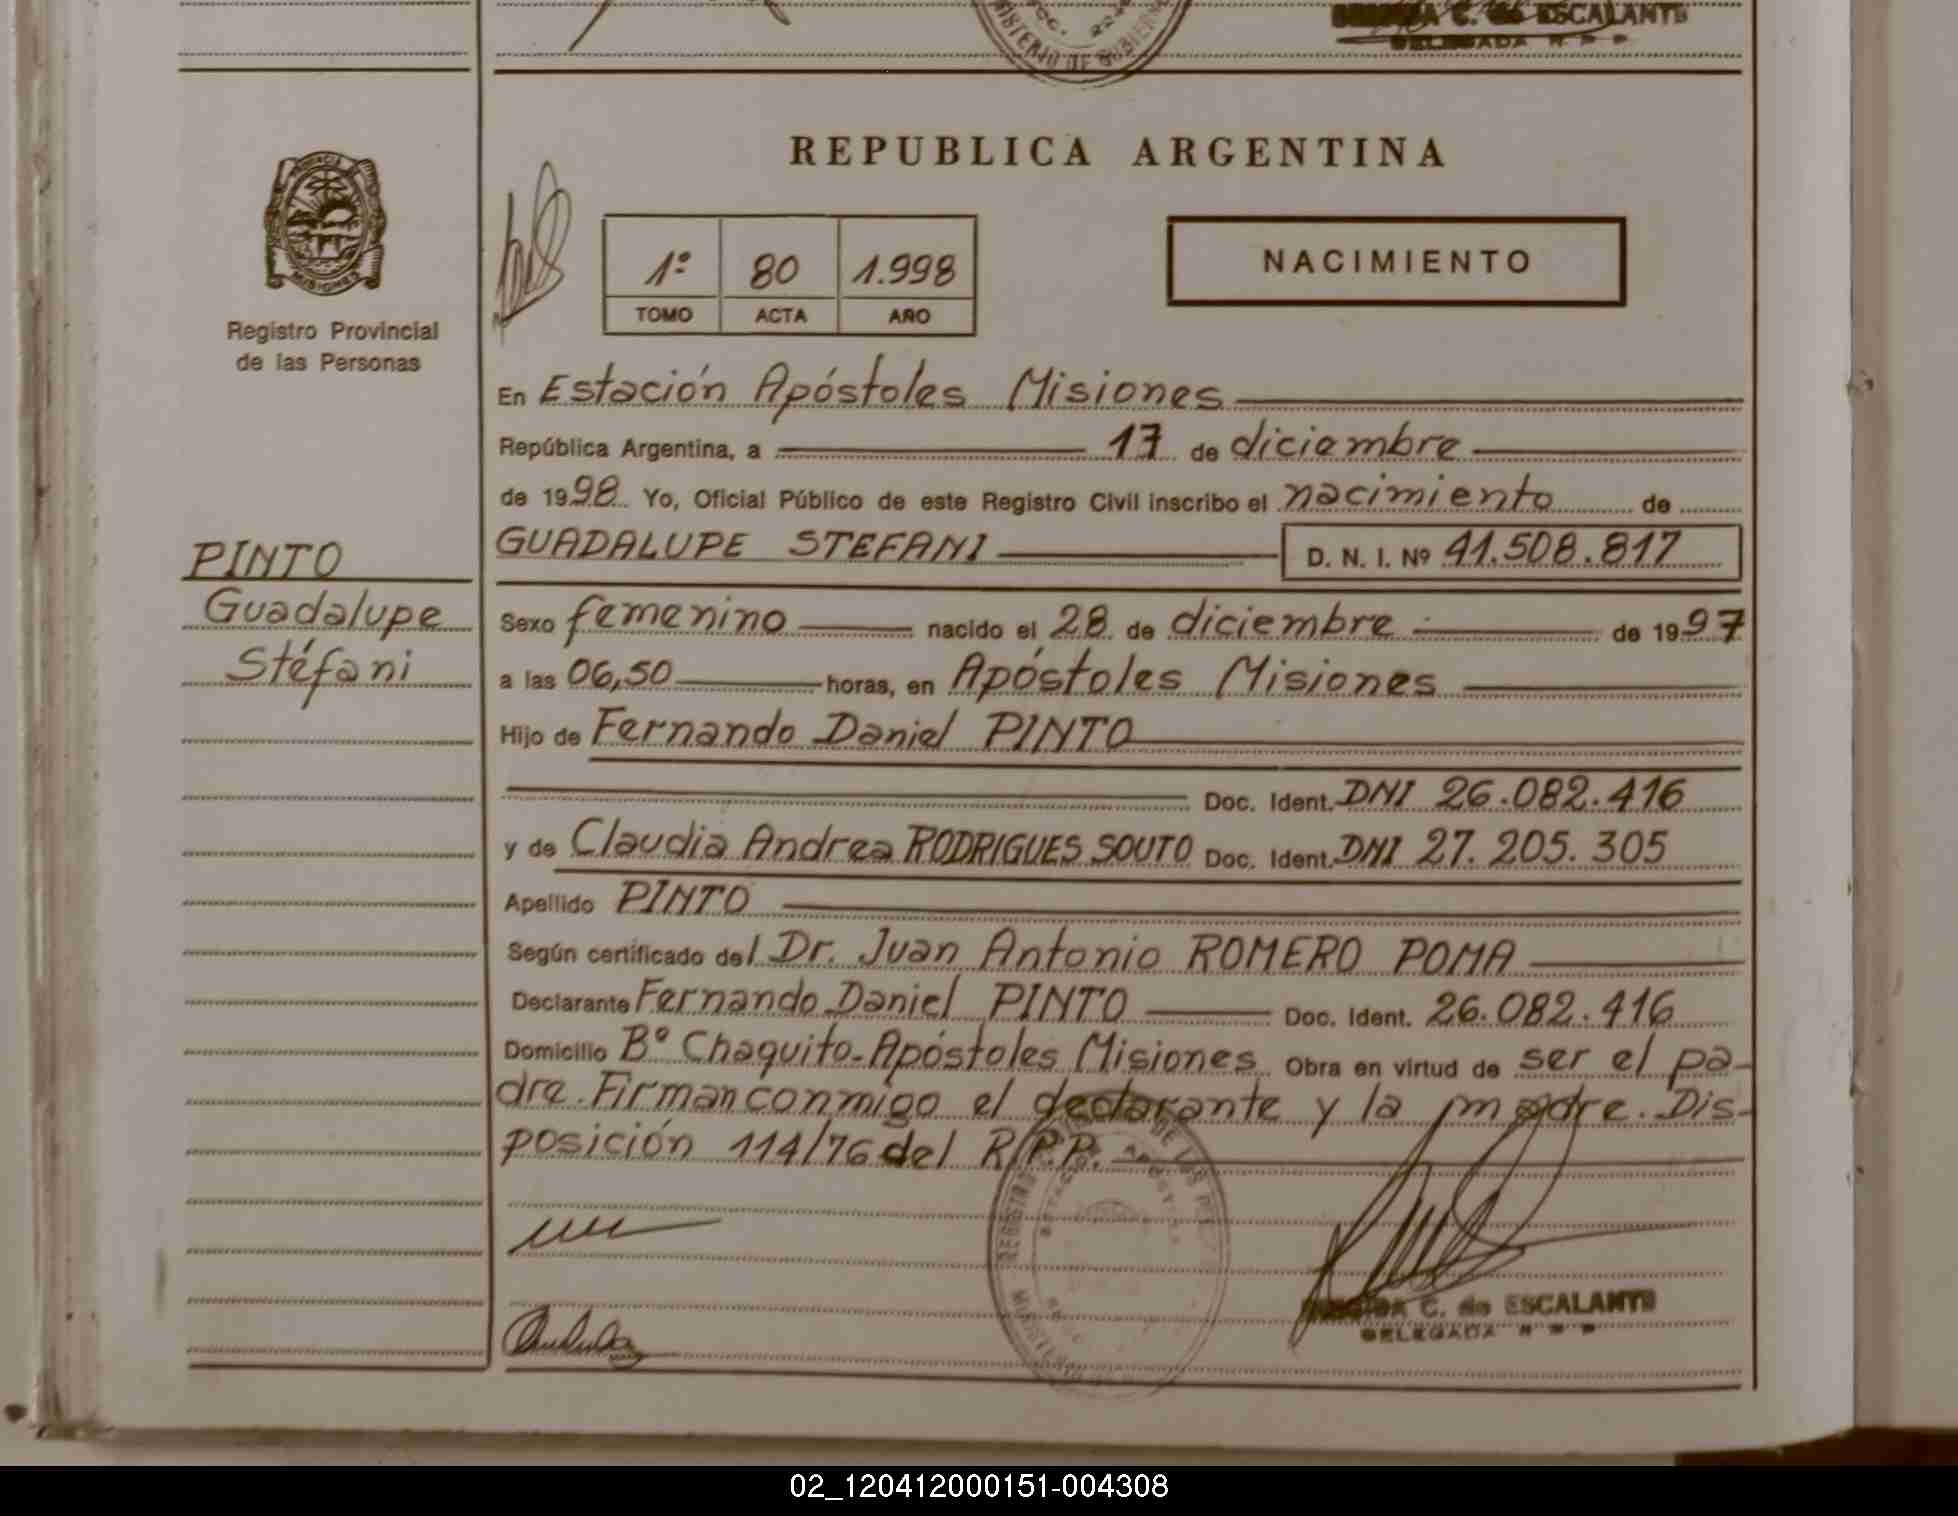 C. de ESCALANTE
DELEGADA R P P
REPUBLICA ARGENTINA
PROVINCIA
MISIONES
Registro Provincial
de las Personas
1º 80 1.998
TOMO ACTA AÑO
NACIMIENTO
En Estación Apóstoles Misiones
República Argentina, a 17 de diciembre
de 1998 Yo, Oficial Público de este Registro Civil inscribo el nacimiento de
GUADALUPE STEFANI D. N. I. Nº 41.508.817
PINTO
Guadalupe
Stéfani
Sexo femenino nacido el 28 de diciembre de 1997
a las 06,50 horas, en Apóstoles Misiones
Hijo de Fernando Daniel PINTO
Doc. Ident. DNI 26.082.416
y de Claudia Andrea RODRIGUES SOUTO Doc. Ident. DNI 27.205.305
Apellido PINTO
Según certificado del Dr. Juan Antonio ROMERO POMA
Declarante Fernando Daniel PINTO Doc. Ident. 26.082.416
Domicilio Bº Chaquito-Apóstoles Misiones Obra en virtud de ser el pa-
dre. Firman conmigo el declarante y la madre. Dis-
posición 114/76 del R.P.P.
C. de ESCALANTE
DELEGADA R P P
02_120412000151-004308